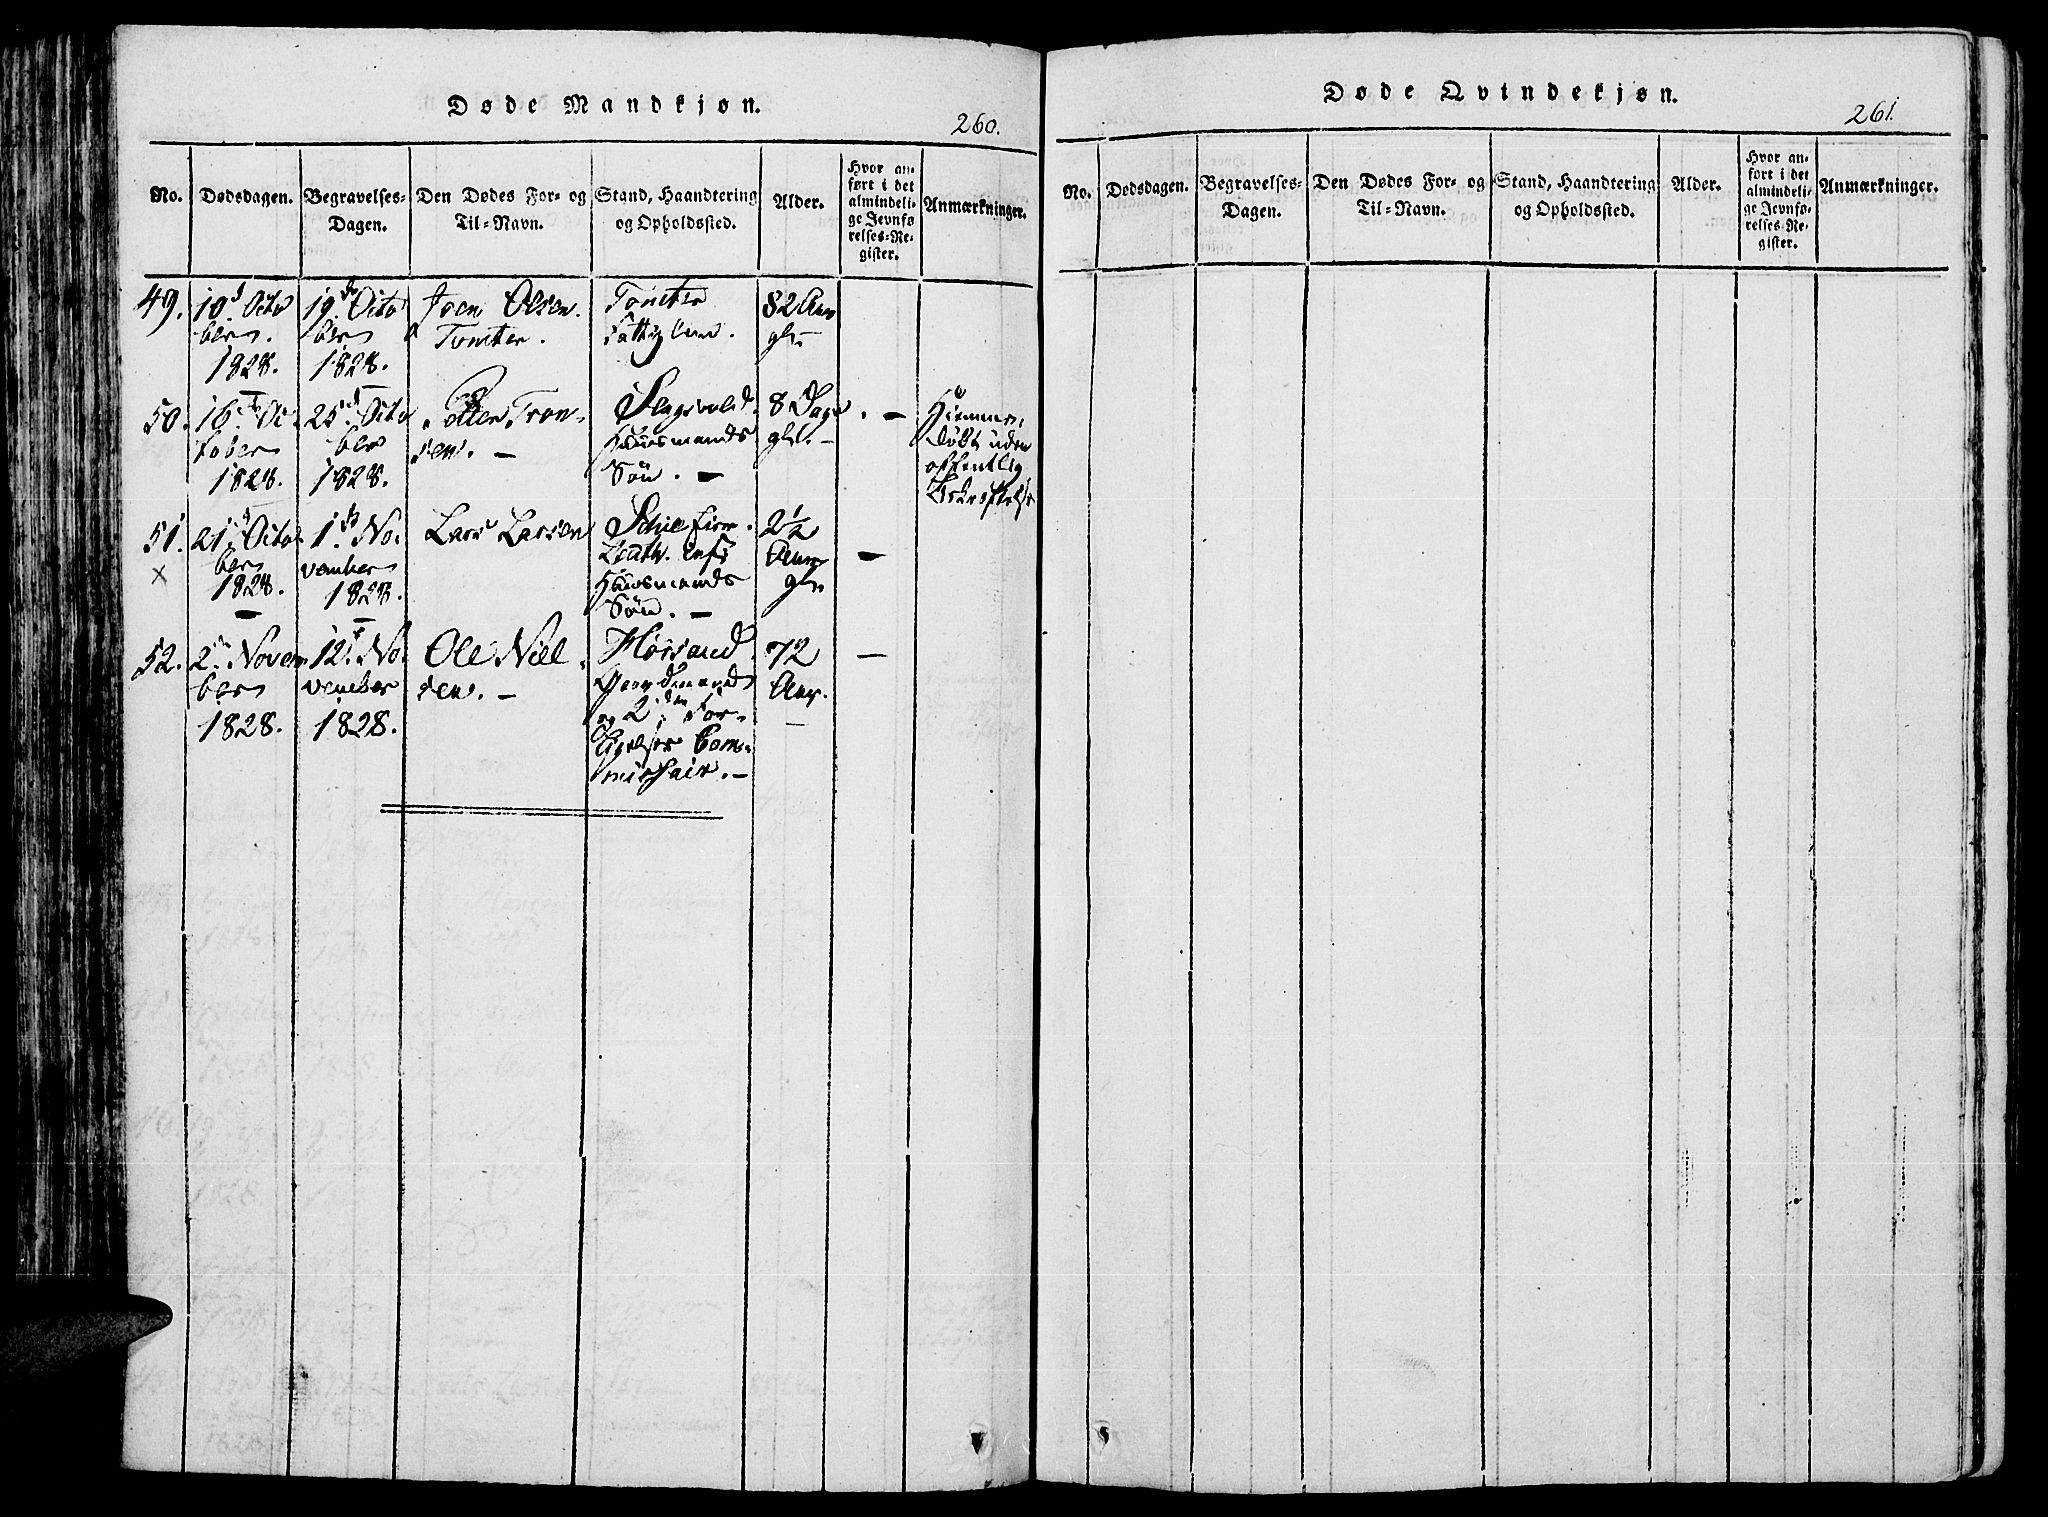 Døde Mandkjøn.
260.
No.
Dødsdagen.
Begravelses-
Dagen.
Den Dødes For- og
Til-Navn.
Stand, Haandtering
og Opholdssted.
Alder.
Hvor an-
ført i det
almindeli-
ge Jevnfø
relses-Re-
gister.
Anmærkninger.
49.
10d Octo
ber.
1828.
19de Octo
ber
1828.
Joen Olsen
Tomter.
Tomter
Fattiglem.
82 Aar
gl.
50.
16de Oc-
tober
1828.
25d Octo
ber
1828.
Peder Tron-
sen. —
Slagsvold
Huusmands
Søn. —
8 Dage
gl. —
. —
Hiemme-
døbt uden
offentlig
Bekræftelse
51.
×
21d Octo
ber
1828.
—
1de No-
vember
1828.
Lars Larsen
Huusmands
Søn. —
2½
Aar
gl.
—
52.
2den Novem
ber
1828.
12te No-
vember
1828.
Ole Niel-
sen. —
Horsand
Gaardmand
og 2den For-
ligelses Com-
missair. —
72
Aar.
—
—
Døde Qvindekjøn.
261.
No.
Dødsdagen.
Begravelses-
Dagen.
Den Dødes For- og
Til-Navn.
Stand, Haandtering
og Opholdssted.
Alder.
Hvor an-
ført i det
almindeli-
ge Jevnfø-
relses-Re-
gister.
Anmærkninger.